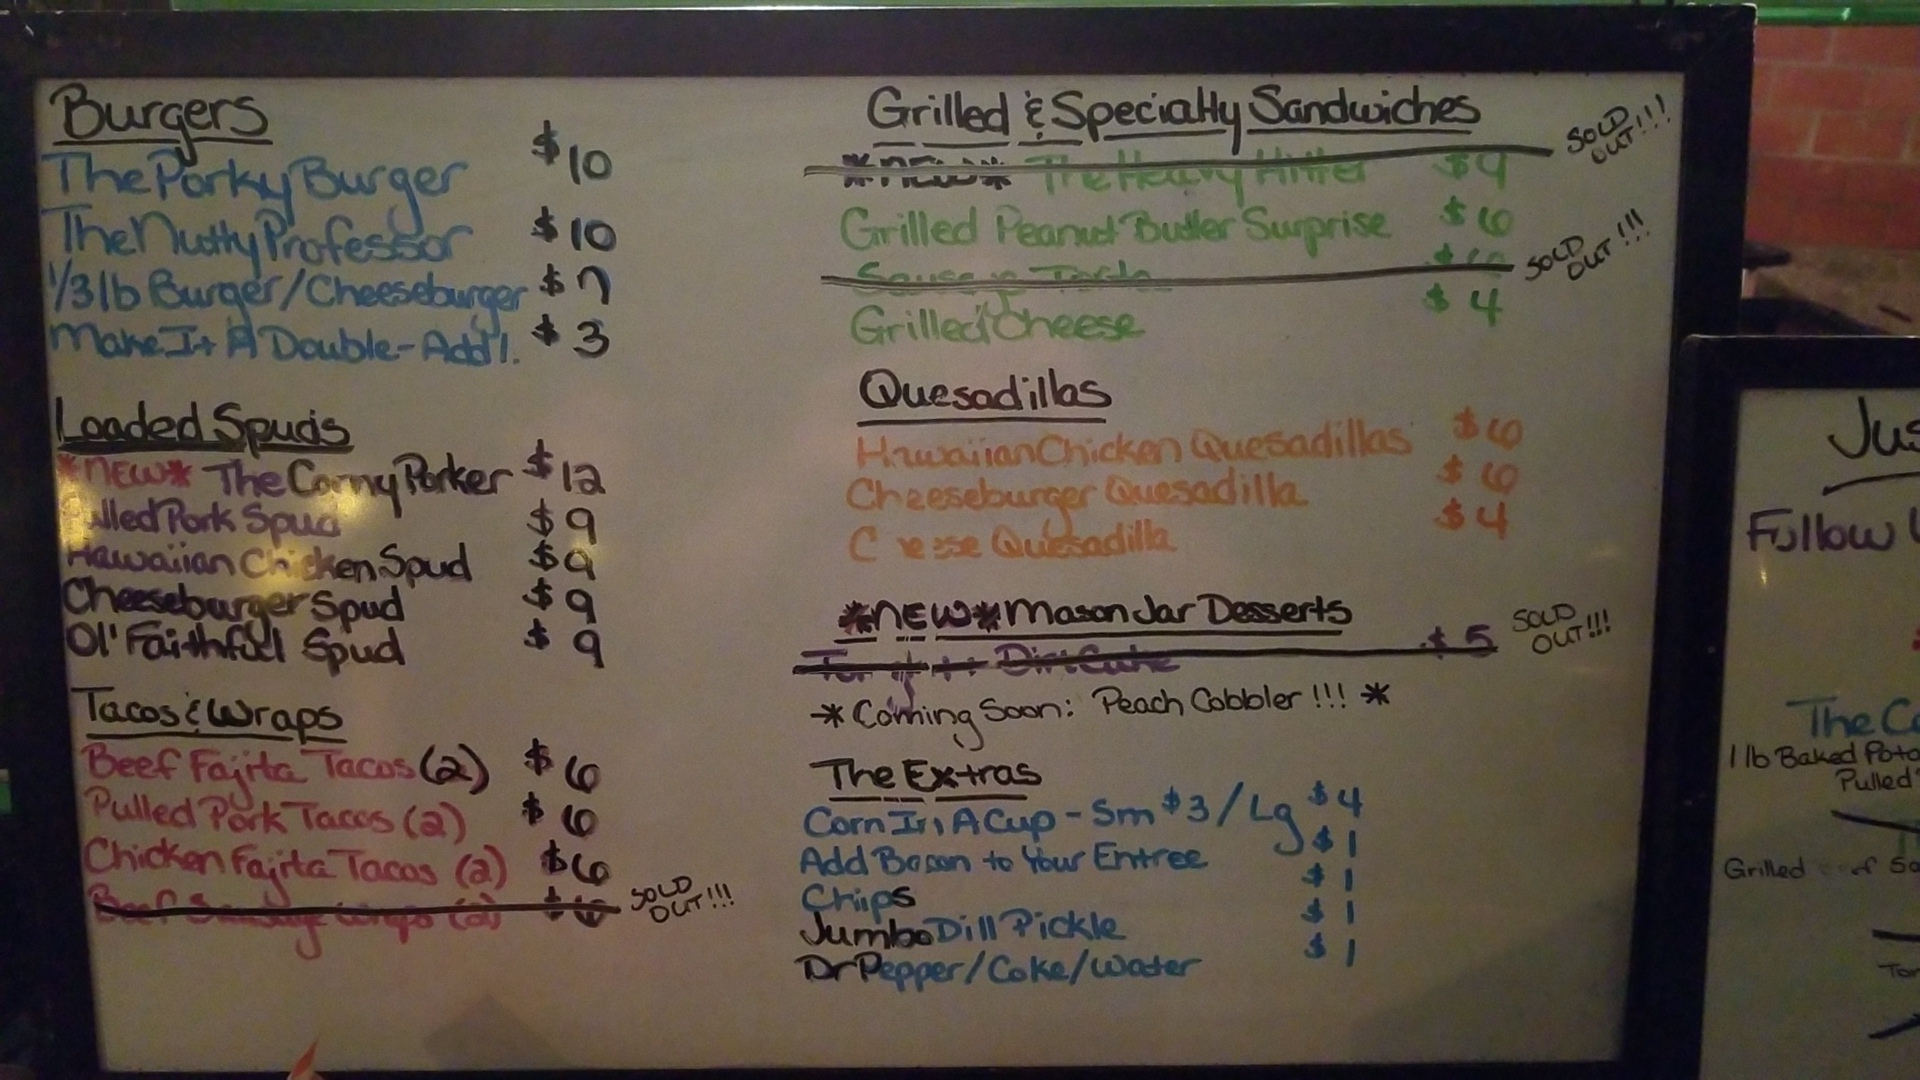 Burgers
The Porky Burger $10
The Nutty Professor $10
1/3 lb Burger/Cheeseburger $7
Make It A Double - Add'l. $3
Loaded Spuds
*NEW* The Corny Porker $12
Pulled Pork Spud $9
Hawaiian Chicken Spud $9
Cheeseburger Spud $9
Ol' Faithful Spud $9
Tacos & Wraps
Beef Fajita Tacos (2) $6
Pulled Pork Tacos (2) $6
Chicken Fajita Tacos (2) $6
Beef Sausage Wraps (2) $6 SOLD OUT!!!
Grilled & Specialty Sandwiches
*NEW* The Heavy Hitter $9 SOLD OUT!!!
Grilled Peanut Butter Surprise $6
Sausage $6 SOLD OUT!!!
Grilled Cheese $4
Quesadillas
Hawaiian Chicken Quesadillas $6
Cheeseburger Quesadilla $6
Cheese Quesadilla $4
*NEW* Mason Jar Desserts
Dirt Cake $5 SOLD OUT!!!
* Coming Soon: Peach Cobbler!!! *
The Extras
Corn In A Cup - Sm $3 / Lg $4
Add Bacon to Your Entree $1
Chips $1
Jumbo Dill Pickle $1
Dr Pepper/Coke/Water $1
Jus
Follow
The Co
1 lb Baked Pota
Pulled
Grilled